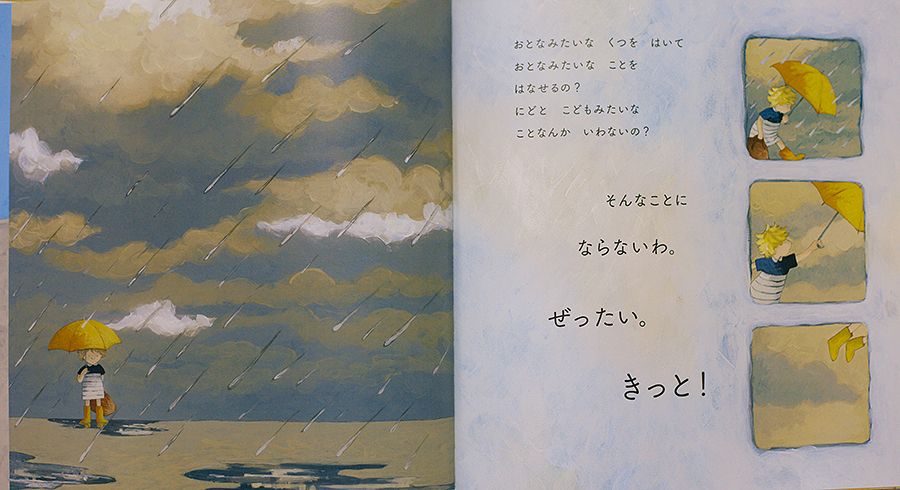 おとなみたいな　くつを　はいて
おとなみたいな　ことを
はなせるの？
にどと　こどもみたいな
ことなんか　いわないの？
そんなことに
ならないわ。
ぜったい。
きっと！